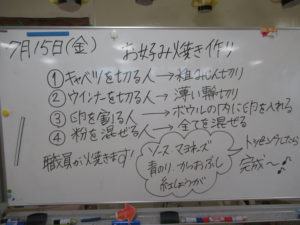 7月15日(金) お好み焼き作り
①キャベツを切る人→粗みじん切り
②ウインナーを切る人→薄い輪切り
③卵を割る人→ボウルの内に卵を入れる
④粉を混ぜる人→全てを混ぜる
職員が焼きます!!
ソース マヨネーズ
青のり かつおぶし
紅しょうが
トッピングしたら
完成〜♪